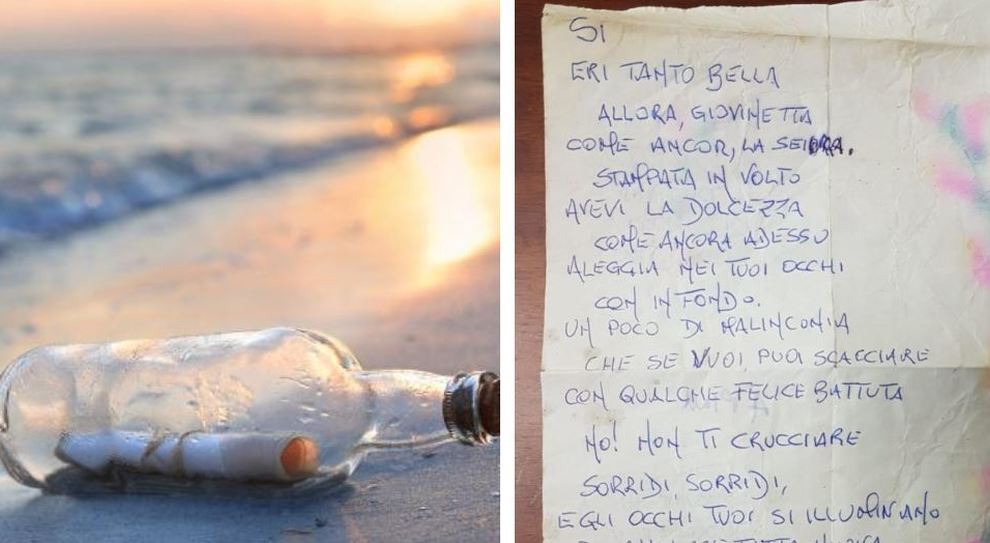 SI
ERI TANTO BELLA
ALLORA, GIOVINETTA
COME ANCOR, LA SEI ORA.
STAMPATA IN VOLTO
AVEVI LA DOLCEZZA
COME ANCORA ADESSO
ALEGGIA NEI TUOI OCCHI
CON IN FONDO.
UN POCO DI MALINCONIA
CHE SE VUOI, PUOI SCACCIARE
CON QUALCHE FELICE BATTUTA
NO! NON TI CRUCCIARE
SORRIDI, SORRIDI,
E GLI OCCHI TUOI SI ILLUMINANO